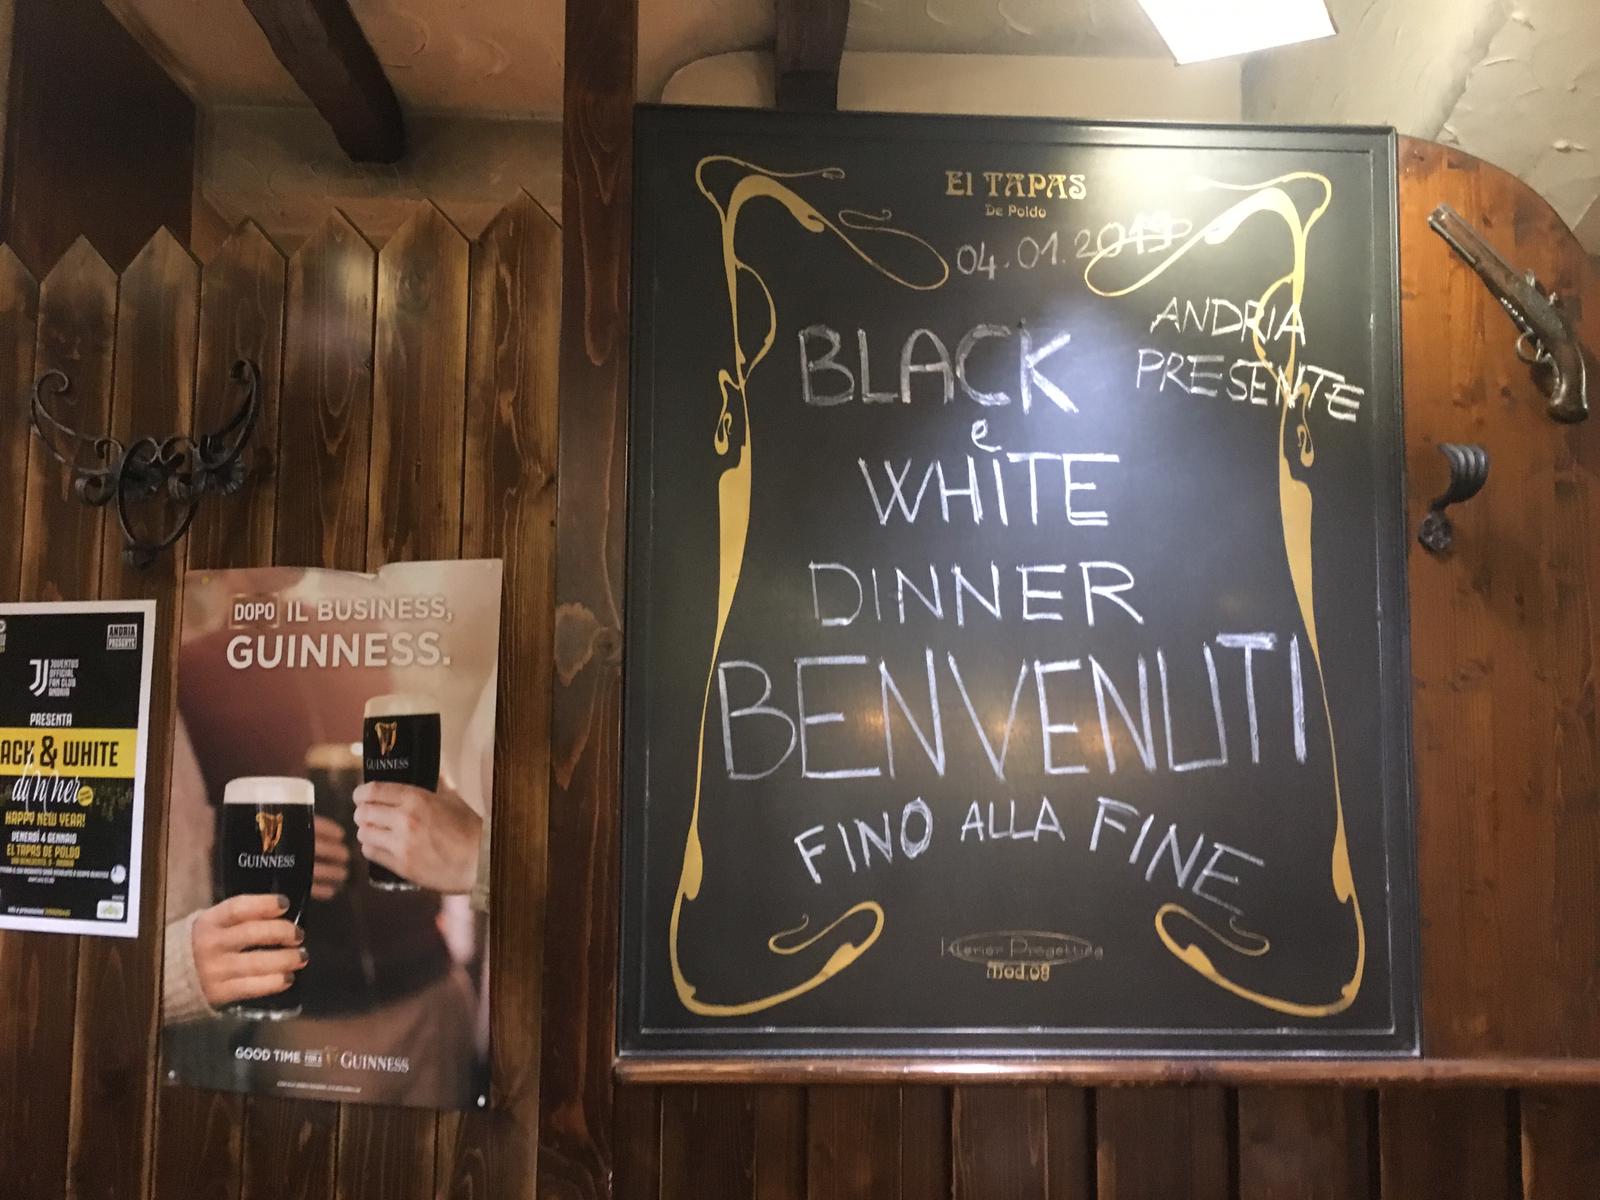 El TAPAS
De Poldo
04.01.2019
ANDRIA
PRESENTE
BLACK
e
WHITE
DINNER
BENVENUTI
FINO ALLA FINE
Mod.08
DOPO IL BUSINESS,
GUINNESS.
GUINNESS
GUINNESS
GOOD TIME FOR A GUINNESS
ANDRIA
PRESENTS
JUVENTUS
OFFICIAL
FAN CLUB
ANDRIA
PRESENTA
ACK & WHITE
dinner
HAPPY NEW YEAR!
VENERDÌ 4 GENNAIO
EL TAPAS DE POLDO